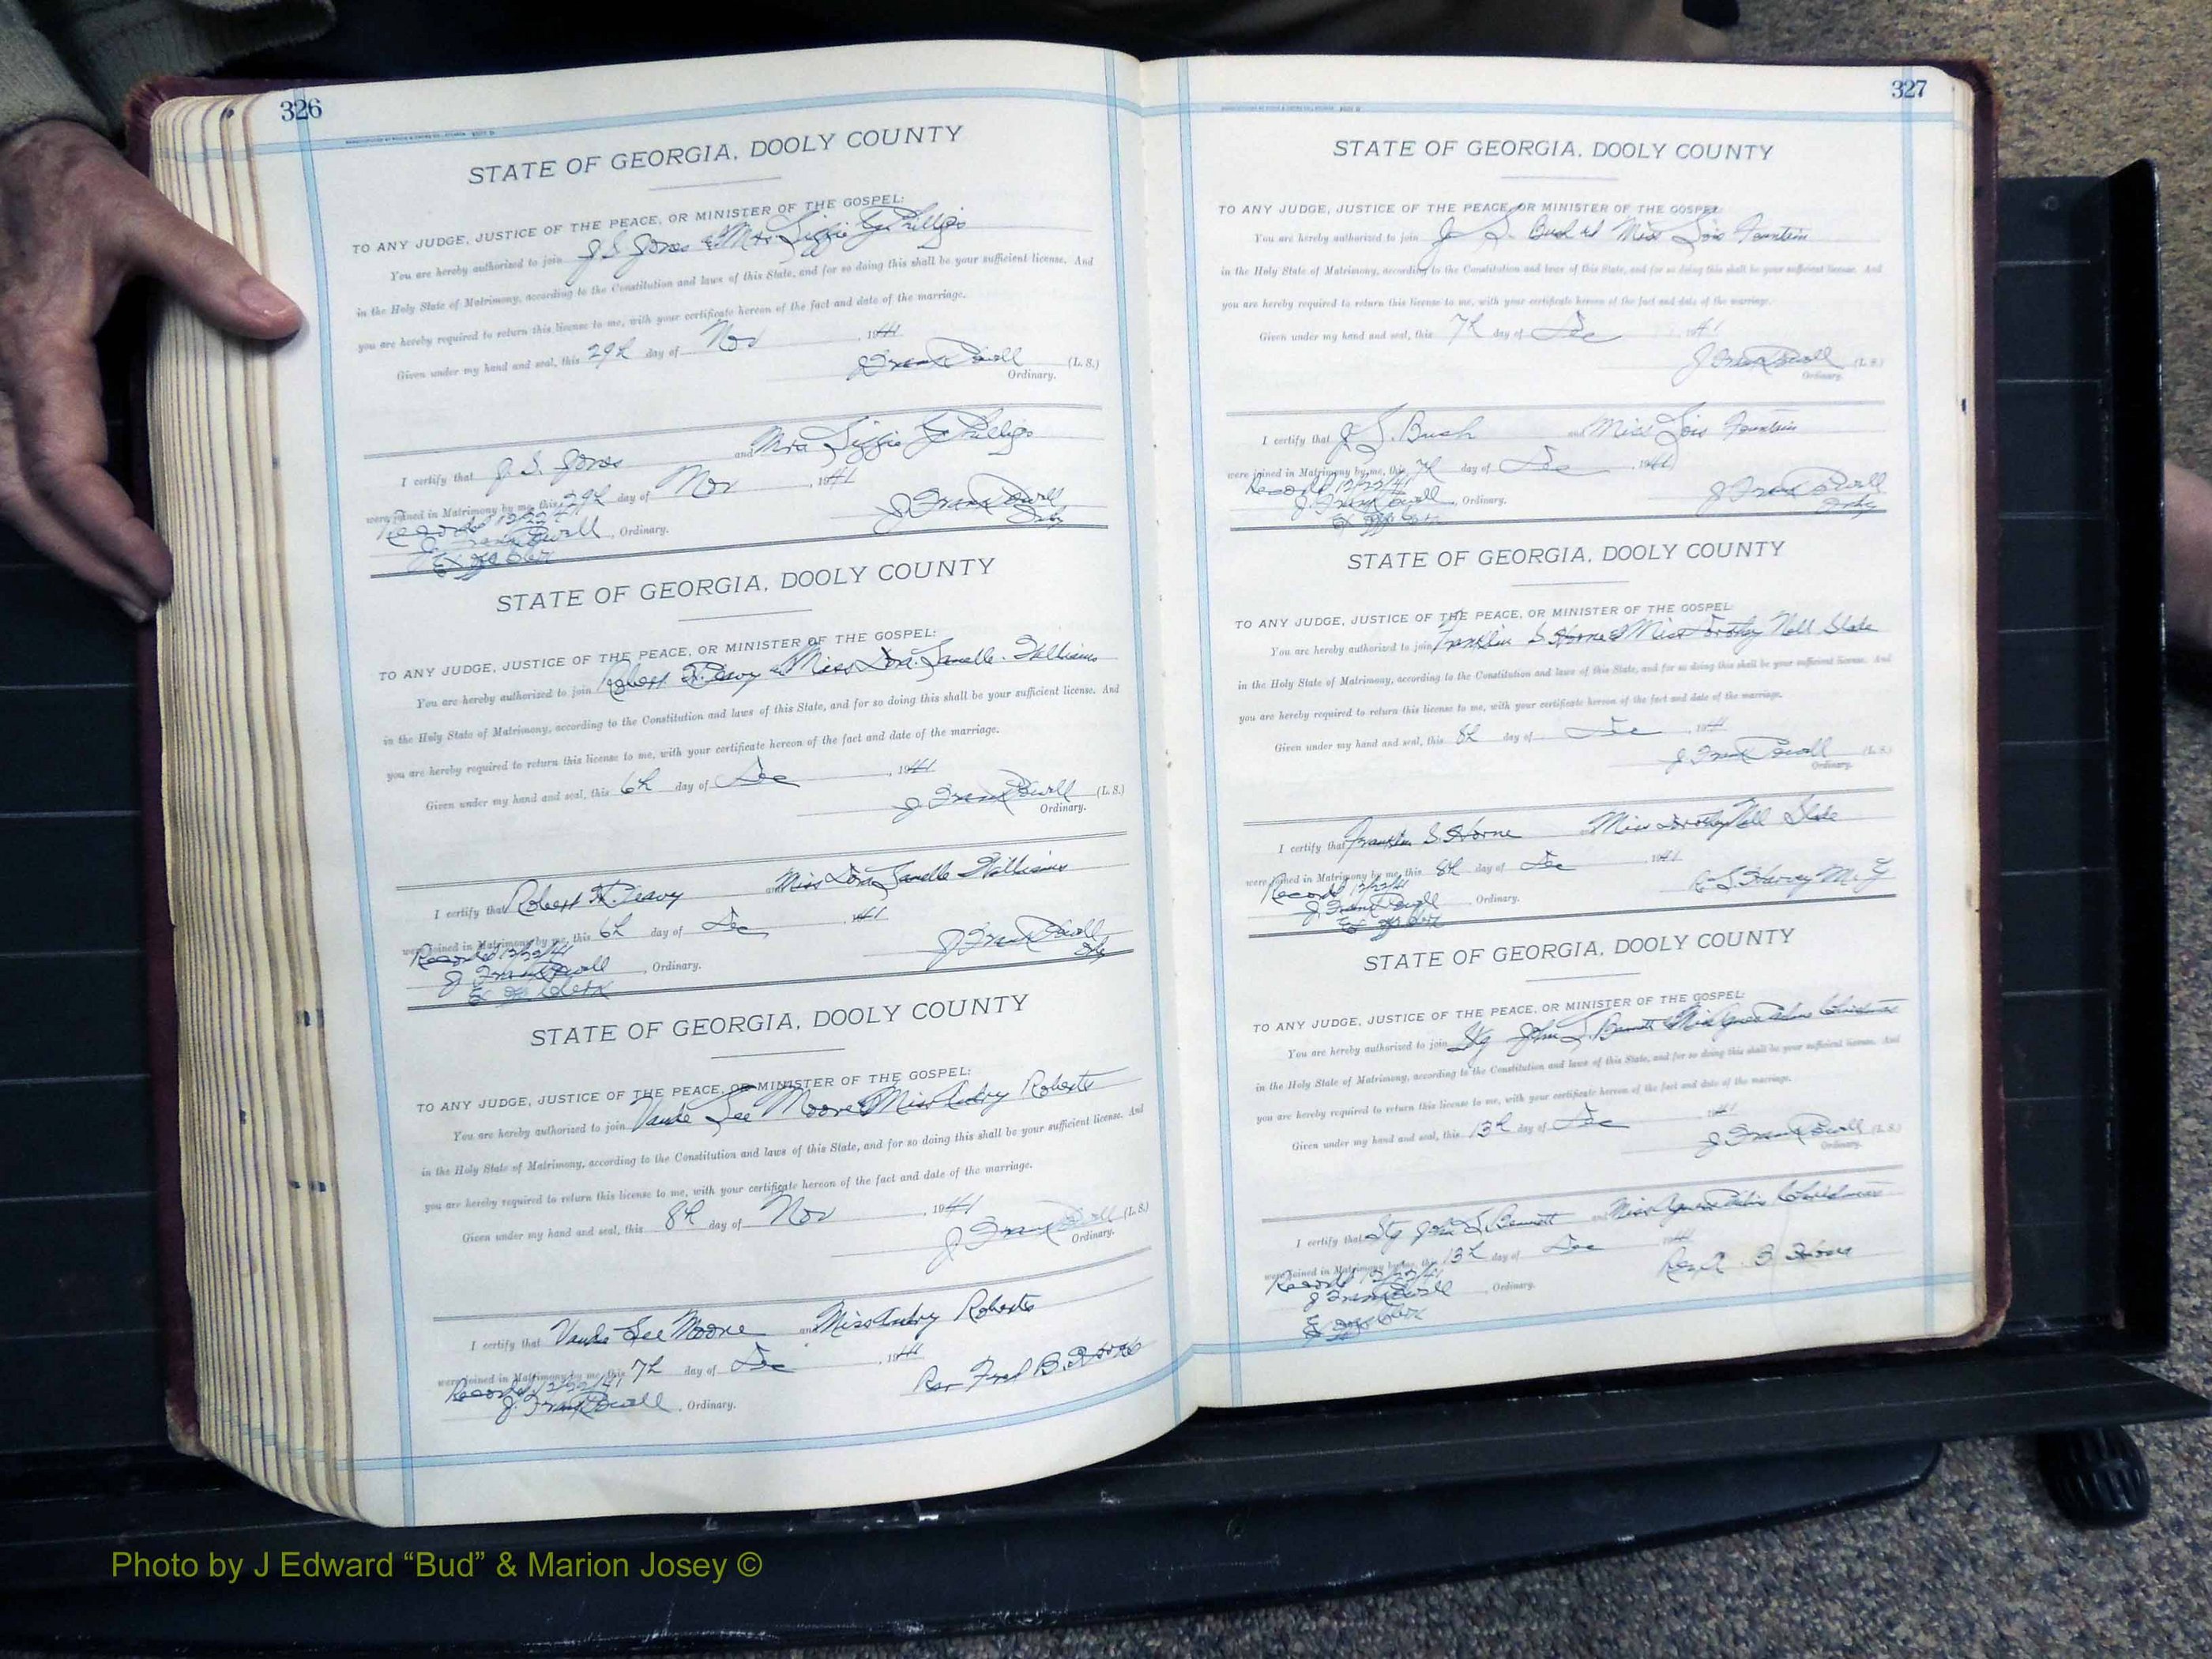 326
STATE OF GEORGIA, DOOLY COUNTY
TO ANY JUDGE, JUSTICE OF THE PEACE, OR MINISTER OF THE GOSPEL:
You are hereby authorized to join J. S. Jones & Mrs Lizzie Phillips
in the Holy State of Matrimony, according to the Constitution and laws of this State, and for so doing this shall be your sufficient license. And
you are hereby required to return this license to me, with your certificate hereon of the fact and date of the marriage.
Given under my hand and seal, this 29th day of Nov, 1941
J Frank Powell (L. S.)
Ordinary.
I certify that J. S. Jones and Mrs Lizzie Phillips
were joined in Matrimony by me, this 29th day of Nov, 1941
Recorded 12/22/41 J Frank Powell
J Frank Powell, Ordinary. Ordy
Ex off Clerk
STATE OF GEORGIA, DOOLY COUNTY
TO ANY JUDGE, JUSTICE OF THE PEACE, OR MINISTER OF THE GOSPEL:
You are hereby authorized to join Robert Peavy & Miss Janelle Williams
in the Holy State of Matrimony, according to the Constitution and laws of this State, and for so doing this shall be your sufficient license. And
you are hereby required to return this license to me, with your certificate hereon of the fact and date of the marriage.
Given under my hand and seal, this 6th day of Dec, 1941
J Frank Powell (L. S.)
Ordinary.
I certify that Robert Peavy and Miss Janelle Williams
were joined in Matrimony by me, this 6th day of Dec, 1941
Recorded 12/22/41 J Frank Powell
J Frank Powell, Ordinary. Ordy
Ex off Clerk
STATE OF GEORGIA, DOOLY COUNTY
TO ANY JUDGE, JUSTICE OF THE PEACE, OR MINISTER OF THE GOSPEL:
You are hereby authorized to join Lee Moore & Miss Roberts
in the Holy State of Matrimony, according to the Constitution and laws of this State, and for so doing this shall be your sufficient license. And
you are hereby required to return this license to me, with your certificate hereon of the fact and date of the marriage.
Given under my hand and seal, this 8th day of Nov, 1941
J Frank Powell (L. S.)
Ordinary.
I certify that Lee Moore and Miss Roberts
were joined in Matrimony by me, this 7th day of Dec, 1941
Recorded 12/22/41 Rev Fred B.
J. Frank Powell, Ordinary.
327
STATE OF GEORGIA, DOOLY COUNTY
TO ANY JUDGE, JUSTICE OF THE PEACE, OR MINISTER OF THE GOSPEL:
You are hereby authorized to join J. S. Bush and Miss Lois Fountain
in the Holy State of Matrimony, according to the Constitution and laws of this State, and for so doing this shall be your sufficient license. And
you are hereby required to return this license to me, with your certificate hereon of the fact and date of the marriage.
Given under my hand and seal, this 7th day of Dec, 1941
J Frank Powell (L. S.)
Ordinary.
I certify that J S. Bush and Miss Lois Fountain
were joined in Matrimony by me, this 7th day of Dec, 1941
Recorded 12/22/41 J Frank Powell
J Frank Powell, Ordinary. Ordy
Ex off Clerk
STATE OF GEORGIA, DOOLY COUNTY
TO ANY JUDGE, JUSTICE OF THE PEACE, OR MINISTER OF THE GOSPEL:
You are hereby authorized to join Franklin S. Horne & Miss Dorothy Nell Slade
in the Holy State of Matrimony, according to the Constitution and laws of this State, and for so doing this shall be your sufficient license. And
you are hereby required to return this license to me, with your certificate hereon of the fact and date of the marriage.
Given under my hand and seal, this 8th day of Dec, 1941
J Frank Powell (L. S.)
Ordinary.
I certify that Franklin S. Horne and Miss Dorothy Nell Slade
were joined in Matrimony by me, this 8th day of Dec, 1941
Recorded 12/22/41 Harvey M. G
J. Frank Powell, Ordinary.
Ex off Clerk
STATE OF GEORGIA, DOOLY COUNTY
TO ANY JUDGE, JUSTICE OF THE PEACE, OR MINISTER OF THE GOSPEL:
You are hereby authorized to join Stg John L. Bennett & Miss Agnes Christmas
in the Holy State of Matrimony, according to the Constitution and laws of this State, and for so doing this shall be your sufficient license. And
you are hereby required to return this license to me, with your certificate hereon of the fact and date of the marriage.
Given under my hand and seal, this 13th day of Dec, 1941
J Frank Powell (L. S.)
Ordinary.
I certify that Stg John L Bennett and Miss Agnes Christmas
were joined in Matrimony by me, this 13th day of Dec, 1941
Recorded 12/22/41 Rev A. B.
J Frank Powell, Ordinary.
Ex off Clerk
Photo by J Edward “Bud” & Marion Josey ©